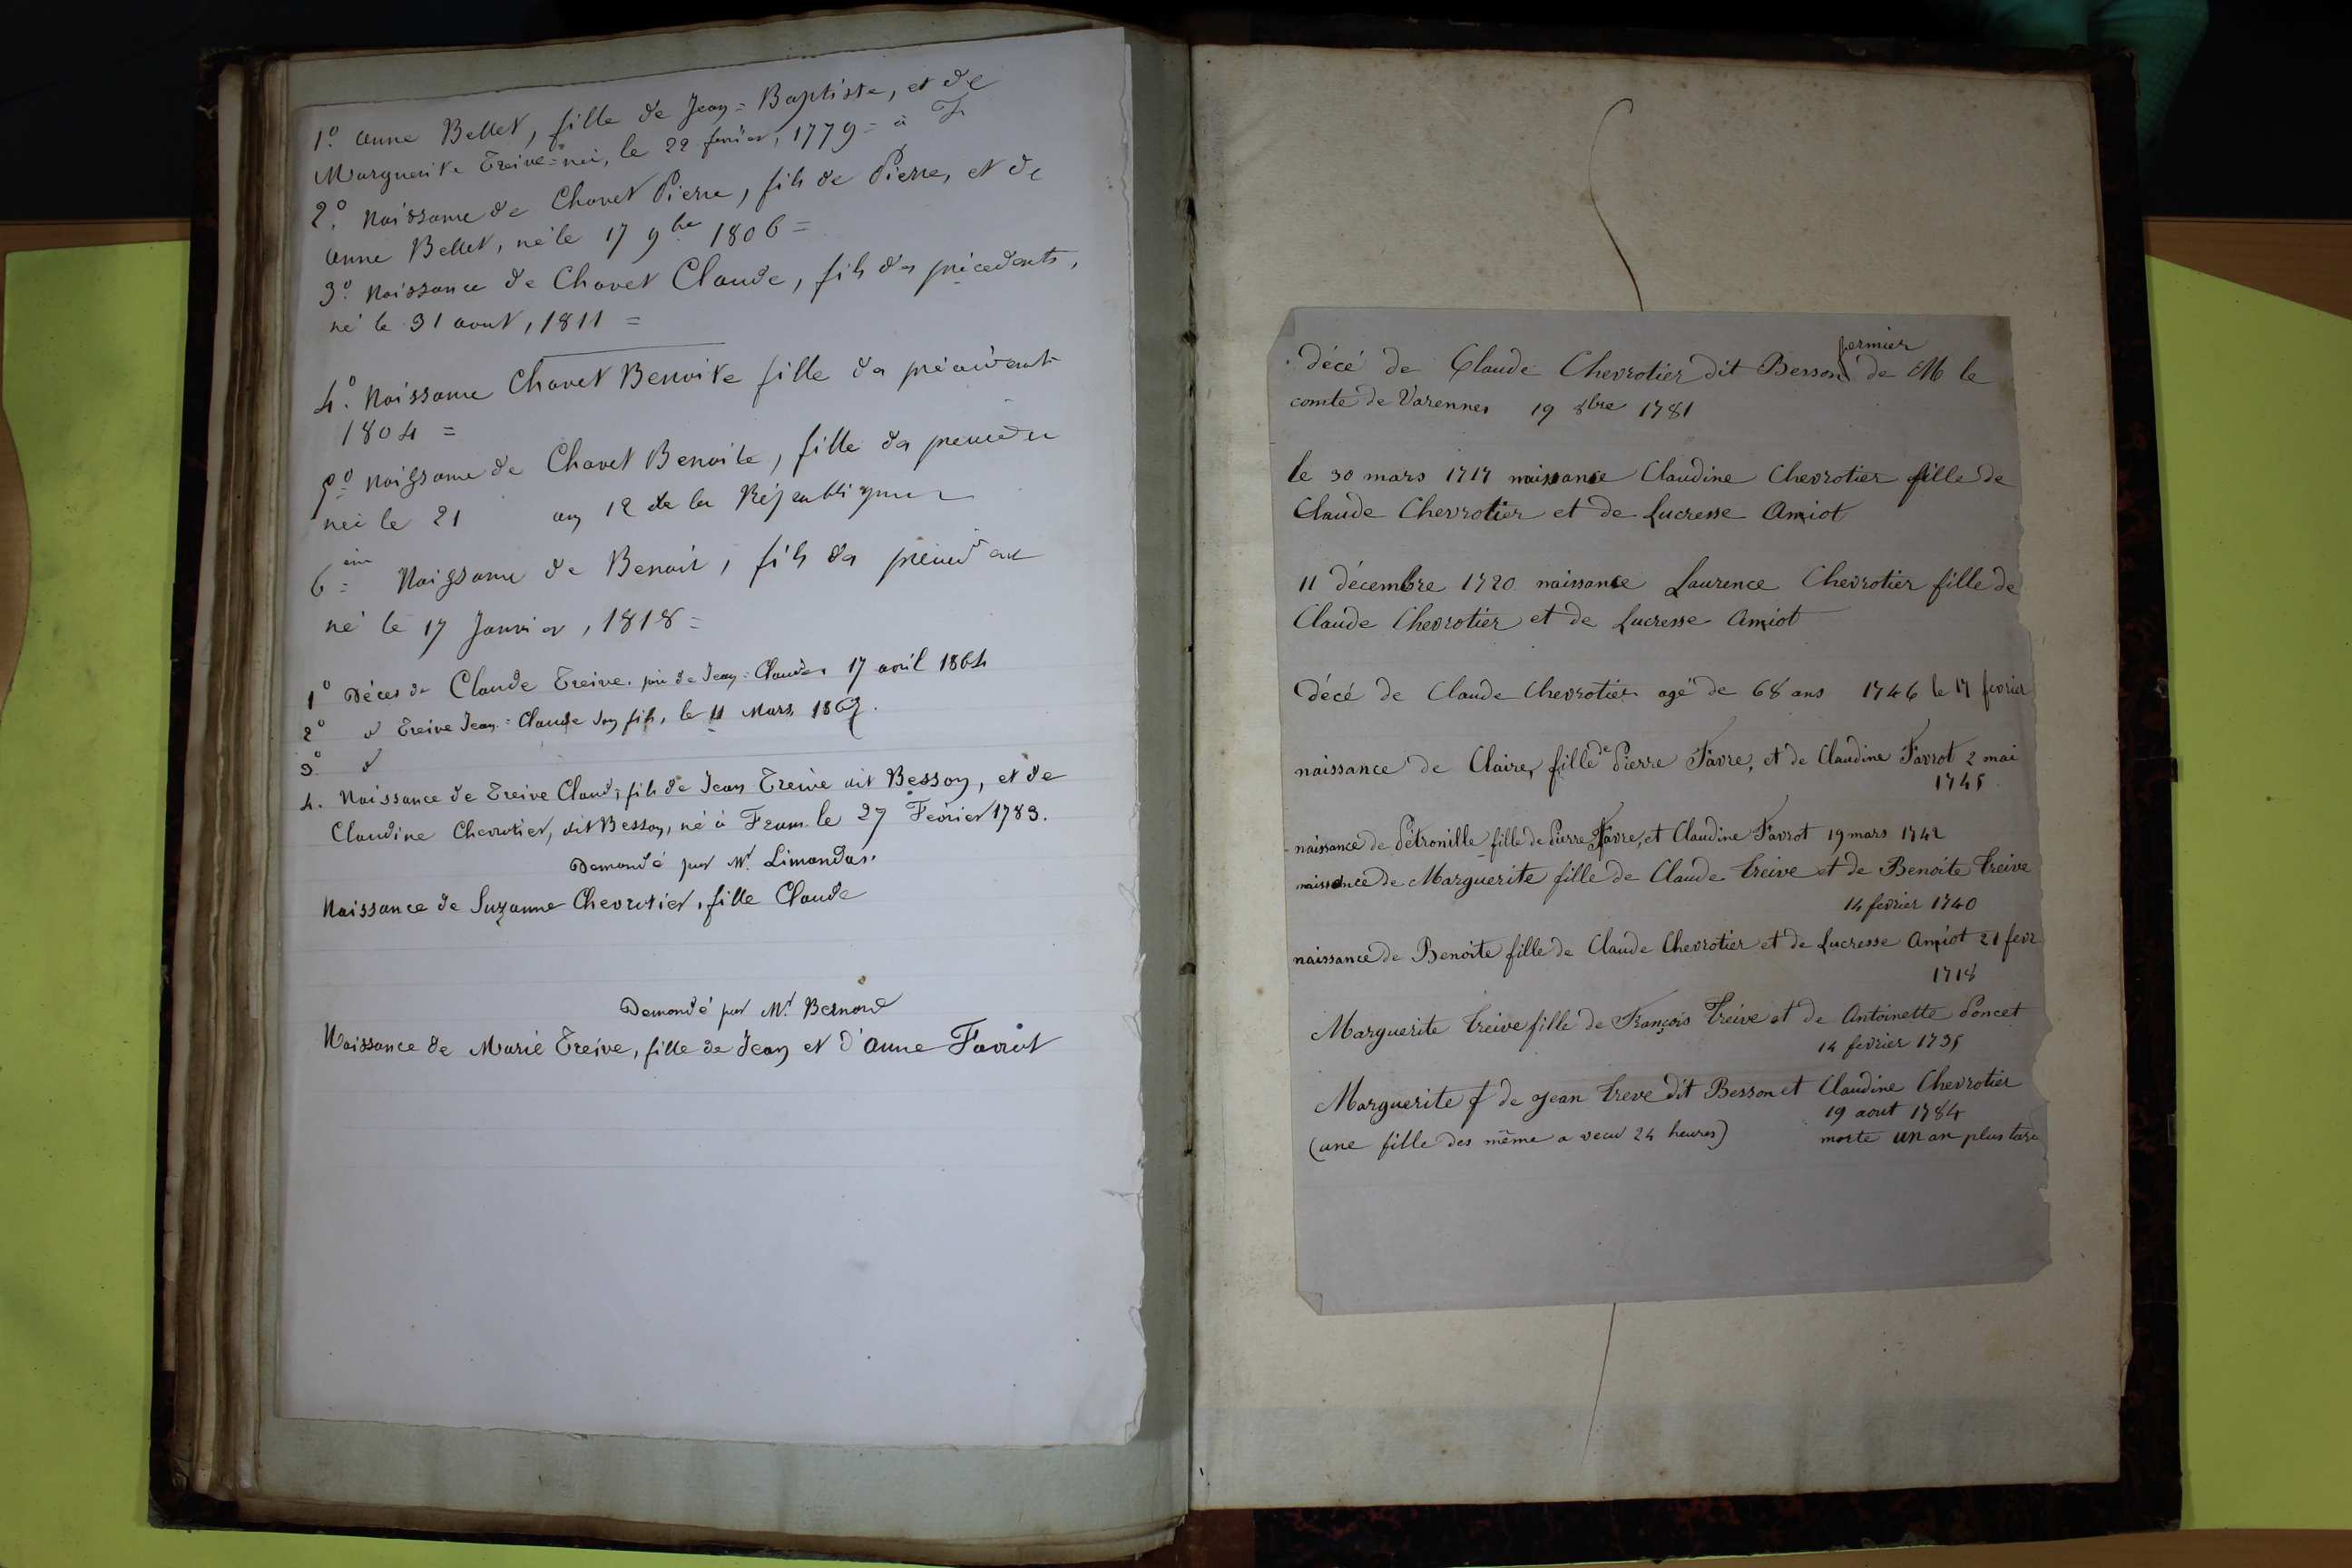 1º. anne Bellet, fille de Jean=Baptiste, et de
Marguerite Treive=née, le 22 février, 1779= à F
2º. Naissance de Chavet Pierre, fils de Pierre, et de
anne Bellet, né le 17 9bre 1806=
3º. Naissance de Chavet Claude, fils des précedents,
né le 31 aout, 1811=
4º. Naissance Chavet Benoite fille des précédents
1804=
5º Naissance de Chavet Benoite, fille des
née le 21 an 12 de la République
6ème Naissance de Benoit, fils des
né le 17 Janvier, 1818=
1º Déces de Claude Treive. père de Jean=Claude. 17 avril 1864
2º d Treive Jean=Claude son fils, le 11 Mars 1867.
3º d
4. Naissance de Treive Claude, fils de Jean Treive dit Besson, et de
Claudine Chevrotier, dit Besson, né à Frans le 27 Fevrier 1783.
Demandé par Mr. Limandas.
Naissance de Suzanne Chevrotier, fille Claude
Demandé par Mr. Bernard
Naissance de Marie Treive, fille de Jean et d'anne Favrot
décé de Claude Chevrotier dit Besson fermier de M le
comte de Varennes 19 8bre 1781
le 30 mars 1717 naissance Claudine Chevrotier fille de
Claude Chevrotier et de Lucresse Amiot
11 décembre 1720 naissance Laurence Chevrotier fille de
Claude Chevrotier et de Lucresse Amiot
décé de Claude Chevrotier agé de 68 ans 1746 le 17 fevrier
naissance de Claire, fille de Pierre Favre, et de Claudine Favrot 2 mai
1745
naissance de Pétronille fille de Pierre Favre, et Claudine Favrot 19 mars 1742
naissance de Marguerite fille de Claude treive et de Benoite treive
14 fevrier 1740
naissance de Benoite fille de Claude Chevrotier et de Lucresse Amiot 21 fevr
1718
Marguerite treive fille de François treive et de Antoinette Poncet
14 fevrier 1735
Marguerite f de jean treve dit Besson et Claudine Chevrotier
19 aout 1784
(une fille des même a vecu 24 heures) morte un an plus tard